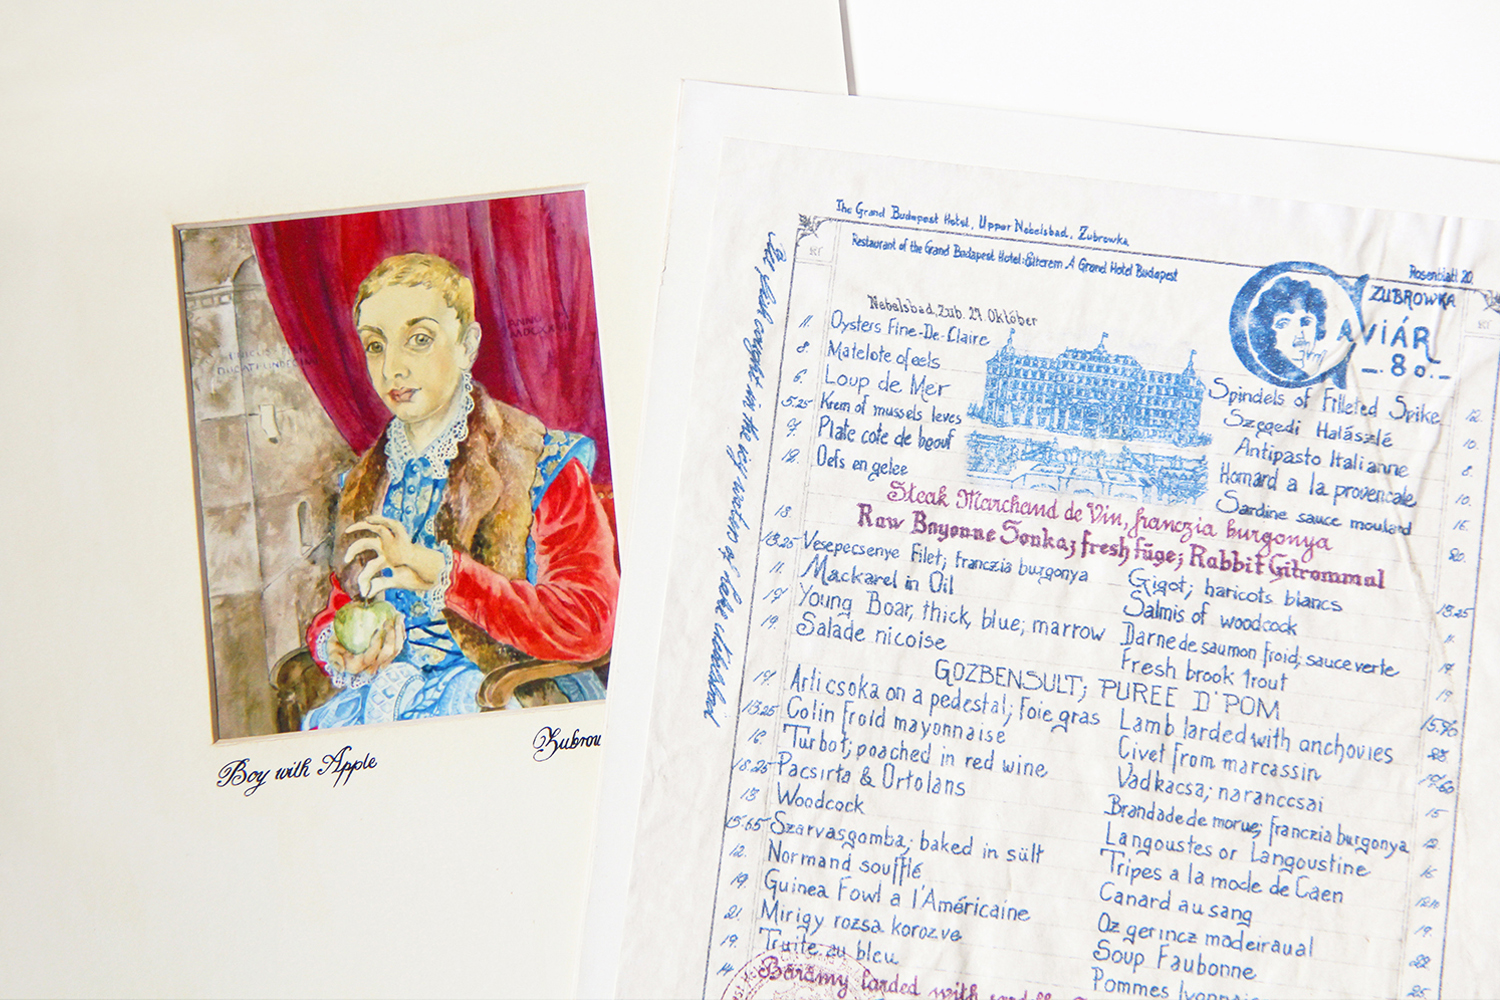 Boy with Apple
Zubrow
The Grand Budapest Hotel, Upper Nebelsbad, Zubrowka
Restaurant of the Grand Budapest Hotel: Éterem A Grand Hotel Budapest
Rosenblatt 20.
Nebelsbad, Zub. 27. Október
ZUBROWKA
CAVIÁR
-.80.-
11. Oysters Fine-De-Claire
8. Matelote of eels
6. Loup de Mer
5.25 Krem of mussels leves
9. Plate cote de boeuf
12. Oefs en gelee
Spindels of Filleted Spike 12.
Szegedi Halászlé 10.
Antipasto Italianne 8.
Homard a la provencale 10.
Sardine sauce moulard 16.
Steak Marchand de Vin, franczia burgonya 20.
18. Raw Bayonne Sonka; fresh füge; Rabbit Gitrommal
13.25 Vesepecsenye Filet; franczia burgonya
11. Mackarel in Oil
17. Young Boar, thick, blue; marrow
19. Salade nicoise
Gigot; haricots blancs 13.25
Salmis of woodcock 11.
Darne de saumon froid; sauce verte 17.
Fresh brook trout 19
GOZBENSULT; PUREE D'POM
17. Articsoka on a pedestal; Foie gras
13.25 Colin froid mayonnaise
16. Turbot; poached in red wine
18.25 Pacsirta & Ortolans
13 Woodcock
15.65 Szarvasgomba; baked in sült
12. Normand soufflé
19. Guinea Fowl a l'Américaine
21. Mirigy rozsa korozve
19. Truite au bleu
Lamb larded with anchovies
Civet from marcassin
Vadkacsa; naranccsai 15
Brandade de morue; franczia burgonya 12.
Langoustes or Langoustine 16
Tripes a la mode de Caen
Canard au sang 19.
Oz gerincz madeiraual 22
Soup Faubonne 25
Pommes lyonnais
14 Barany larded with